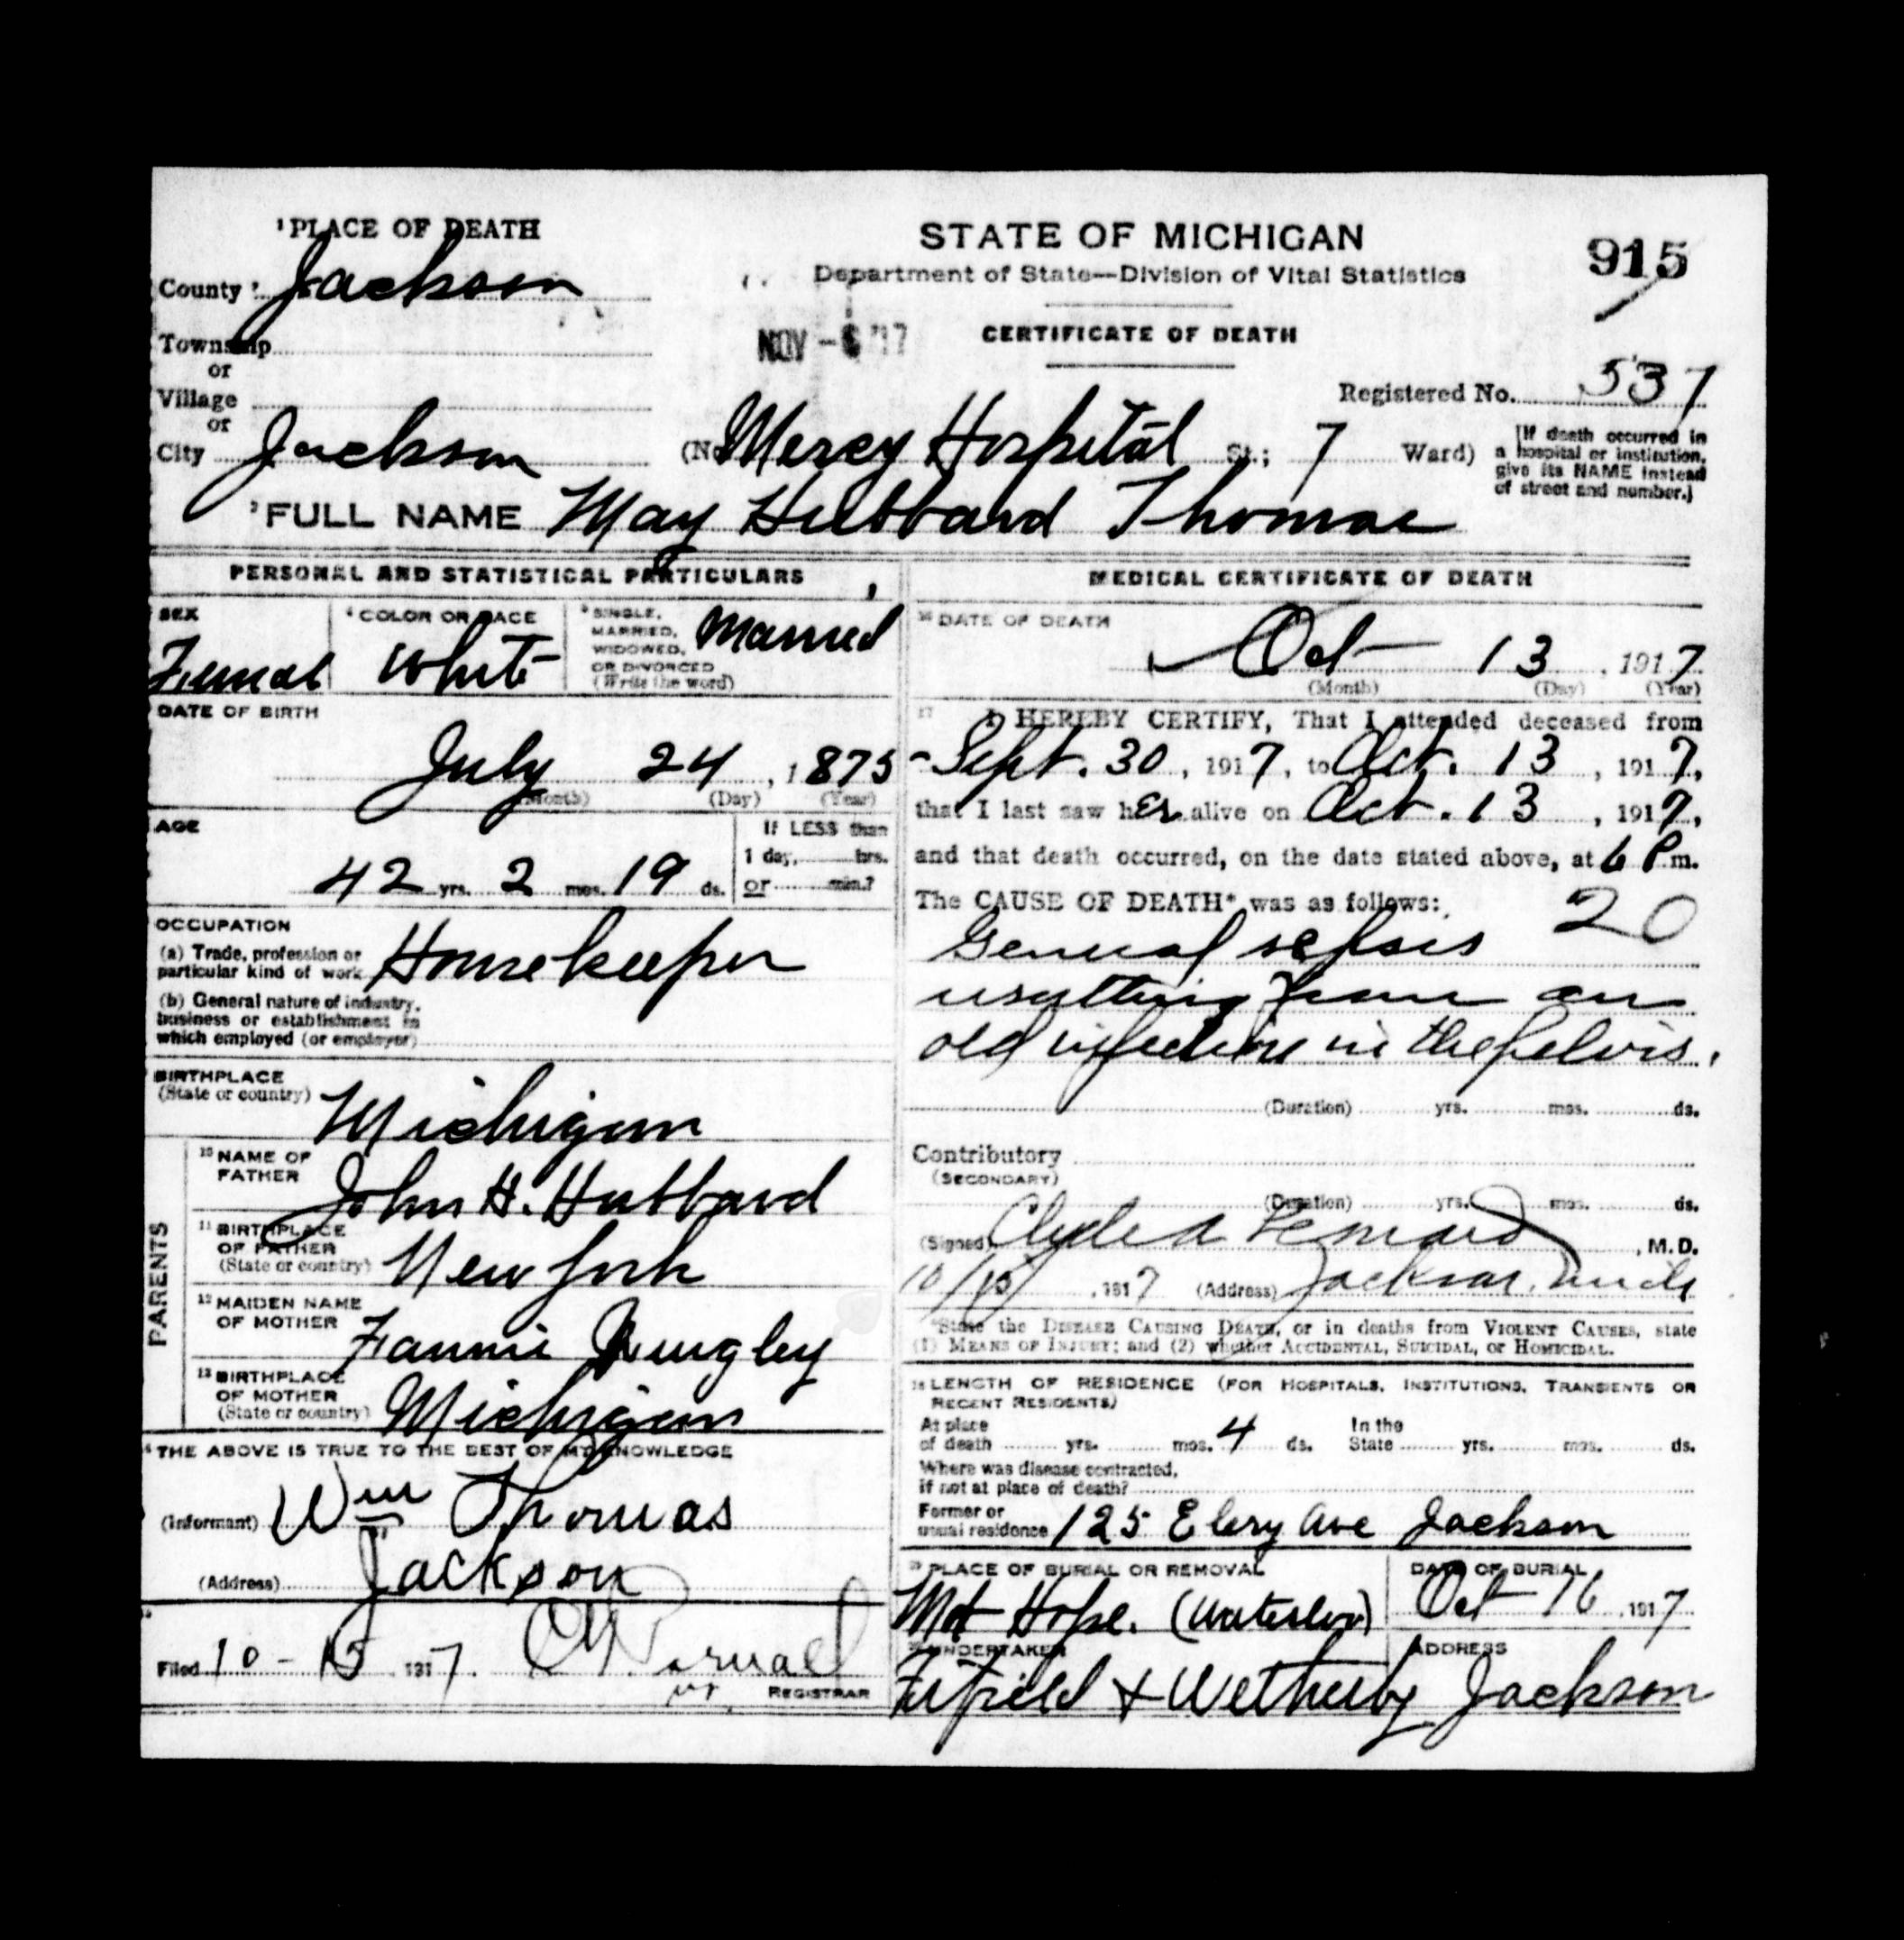 1 PLACE OF DEATH
County Jackson
Township
or
Village
or
City Jackson
STATE OF MICHIGAN
Department of State—Division of Vital Statistics
CERTIFICATE OF DEATH
915
NOV - 6 '17
Registered No. 537
(No Mercy Hospital St.; 7 Ward)
[If death occurred in
a hospital or institution,
give its NAME instead
of street and number.]
2 FULL NAME May Hubbard Thomas
PERSONAL AND STATISTICAL PARTICULARS
SEX
Femal
4 COLOR OR RACE
White
5 SINGLE,
MARRIED,
WIDOWED,
OR DIVORCED
(Write the word)
Married
DATE OF BIRTH
July 24, 1875
(Month) (Day) (Year)
AGE
42 yrs. 2 mos. 19 ds.
If LESS than
1 day, hrs.
or min.?
OCCUPATION
(a) Trade, profession or
particular kind of work Housekeeper
(b) General nature of industry,
business or establishment in
which employed (or employer)
BIRTHPLACE
(State or country) Michigan
PARENTS
10 NAME OF
FATHER John H. Hubbard
11 BIRTHPLACE
OF FATHER
(State or country) New York
12 MAIDEN NAME
OF MOTHER Fannie
13 BIRTHPLACE
OF MOTHER
(State or country) Michigan
THE ABOVE IS TRUE TO THE BEST OF MY KNOWLEDGE
(Informant) Wm Thomas
(Address) Jackson
Filed 10-15 1917.
REGISTRAR
MEDICAL CERTIFICATE OF DEATH
16 DATE OF DEATH
Oct 13, 1917
(Month) (Day) (Year)
17 I HEREBY CERTIFY, That I attended deceased from
Sept. 30, 1917, to Oct. 13, 1917,
that I last saw her alive on Oct. 13, 1917,
and that death occurred, on the date stated above, at 6 P.m.
The CAUSE OF DEATH* was as follows: 20
General sepsis
resulting from an
old infection in the pelvis.
(Duration) yrs. mos. ds.
Contributory
(SECONDARY)
(Duration) yrs. mos. ds.
(Signed) Clyde A Leonard, M.D.
10/15, 1917 (Address) Jackson, Mich
*State the DISEASE CAUSING DEATH, or in deaths from VIOLENT CAUSES, state
(1) MEANS OF INJURY; and (2) whether ACCIDENTAL, SUICIDAL, or HOMICIDAL.
18 LENGTH OF RESIDENCE (FOR HOSPITALS, INSTITUTIONS, TRANSIENTS OR
RECENT RESIDENTS)
At place
of death yrs. mos. 4 ds.
In the
State yrs. mos. ds.
Where was disease contracted,
if not at place of death?
Former or
usual residence 125 Elery Ave Jackson
19 PLACE OF BURIAL OR REMOVAL
Mt Hope. (Waterloo)
DATE OF BURIAL
Oct 16, 1917
20 UNDERTAKER
Fifield & Wetherby
ADDRESS
Jackson